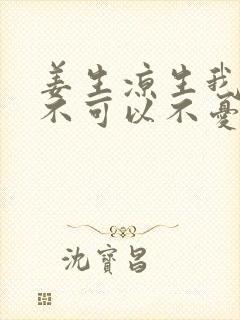 姜生涼生我
不可以不憂
沈寶昌